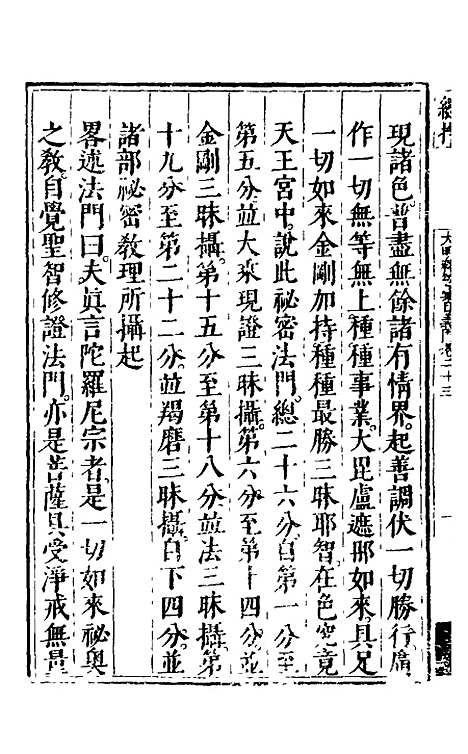 現諸色普盡無餘諸有情界起善調伏一切勝行廣
作一切無等無上種種事業大毘盧遮那如來具足
一切如來金剛加持種種最勝三昧耶智在色究竟
天王宮中說此祕密法門總二十六分自第一分至
第五分並大乘現證三昧攝第六分至第十四分並
金剛三昧攝第十五分至第十八分並法三昧攝第
十九分至第二十二分並羯磨三昧攝自下四分並
諸部祕密教理所攝起
畧述法門曰夫眞言陀羅尼宗者是一切如來祕奧
之教自覺聖智修證法門亦是菩薩具受淨戒無量